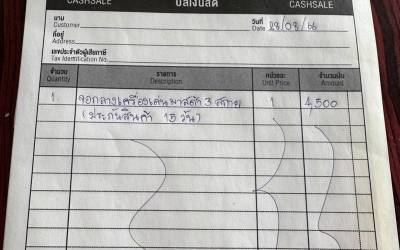 CASHSALE บิลเงินสด CASHSALE
นาม
Customer
วันที่
Date 28/08/66
ที่อยู่
Address
เลขประจำตัวผู้เสียภาษี
Tax Identification No.
จำนวน รายการ หน่วยละ จำนวนเงิน
Quantity Description Unit Price Amount
1. จอกลางเครื่องเล่นมาสด้า 3 1 4,500
(ประกันสินค้า 15 วัน)